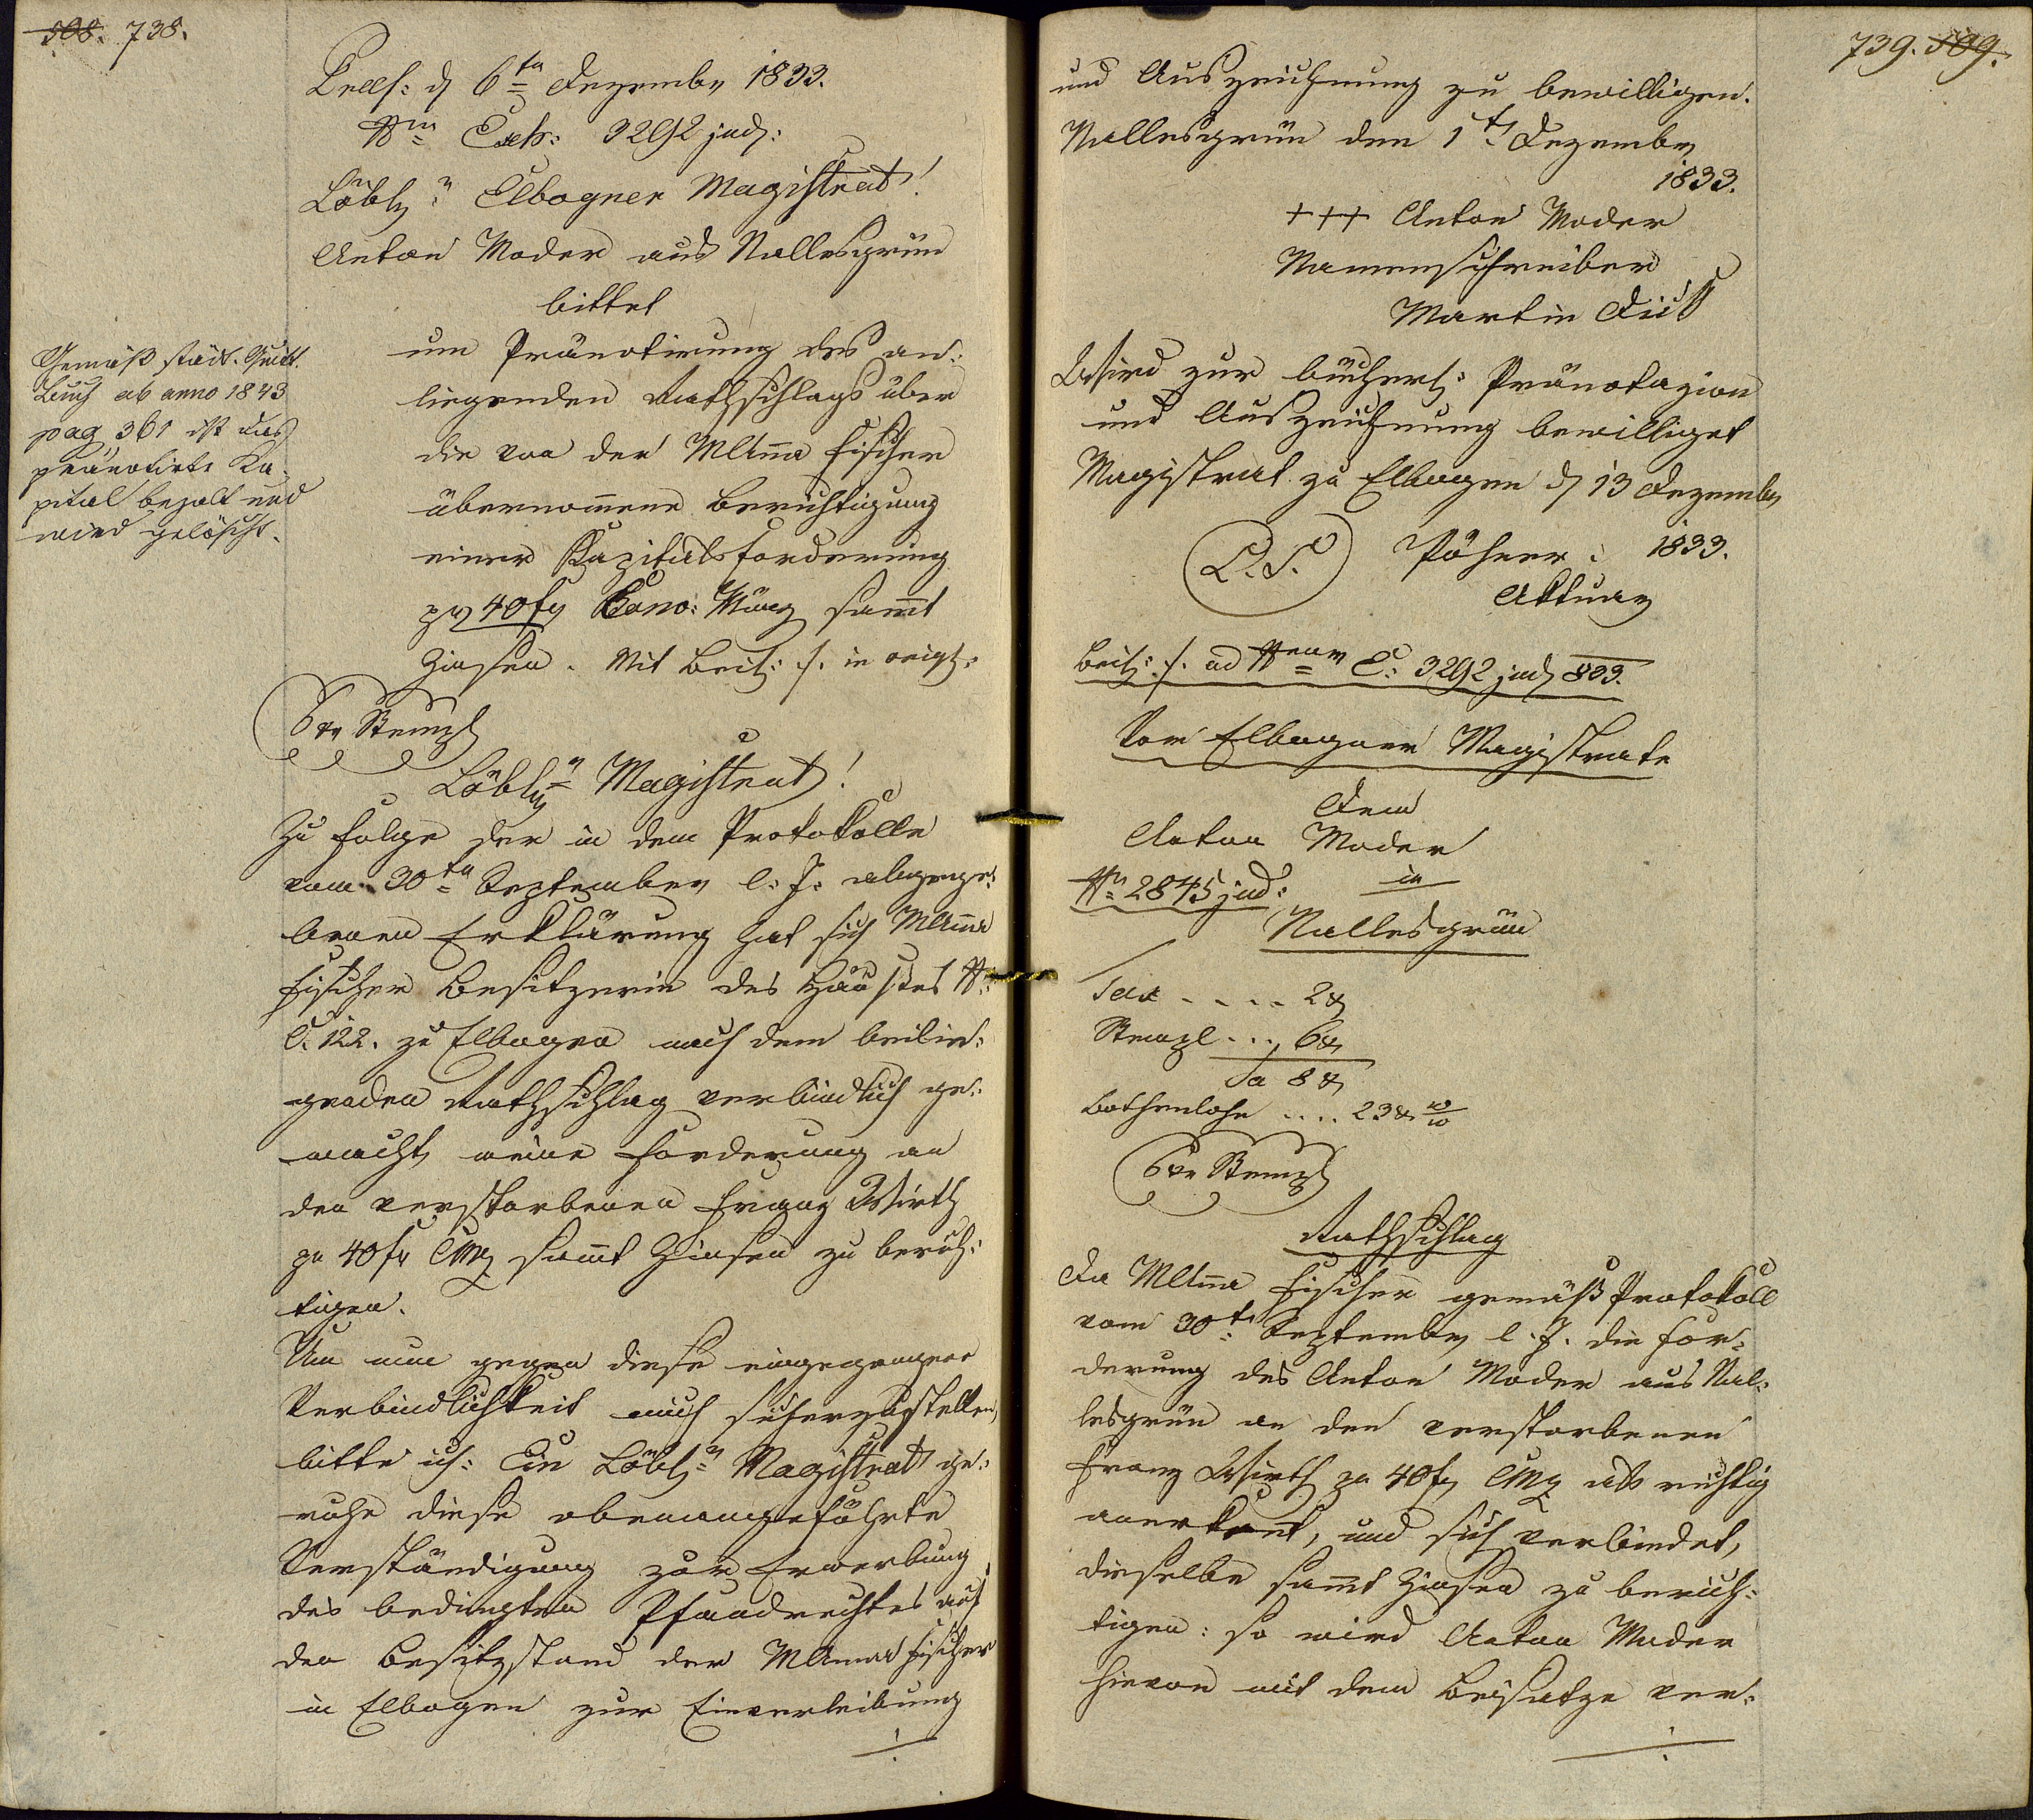 508. 738.
Præs: d 6ten Dezember 1833.
Nro Exh: 3292 jud:
Löblr Elbogner Magistrat!
Anton Moder aus Nallesgrün
bittet
um Pränotirung des an-
liegenden Rathschlags über
die von der MAnna Fischer
übernomene Berichtigung
einer Kapitalsforderung
pr 40 f Conv: Münz samt
Zinsen. Mit Beil: ./. in origl:
Gemäß städt. Quitt.
Buch ab anno 1843
pag 361 ist das
pränotirte Ka-
pital bezalt und
wird gelöscht.
6 xr Stempl
Löblr Magistrat!
Zu Folge der in dem Protokolle
vom 30ten September l: J: abgege-
benen Erklärung hat sich MAnna
Fischer Besitzerin des Hauses N:
C. 122. zu Elbogen nach dem beilie-
genden Rathschlag verbindlich ge-
macht, meine Forderung an
den verstorbenen Franz Wirth
pr 40 f CMz samt Zinsen zu berich-
tigen.
Um nun gegen diese eingegangene
Verbindlichkeit mich sicherzustellen,
bitte ich: Ein Löblr Magistrat ge-
ruhe diese obenangeführte
Verständigung zur Erwerbung
des bedingten Pfandrechtes auf
den Besitzstand der MAnna Fischer
in Elbogen zur Einverleibung
./.
739. 509.
und Auszeichnung zu bewilligen.
Nallesgrün den 1ten Dezember
1833.
+++ Anton Moder
Namensschreiber
Martin
Wird zur bücherl: Pränotazion
und Auszeichnung bewilliget
Magistrat zu Elbogen d 13 Dezember
1833.
L. S. Pöhner
Aktuar
Beil: ./. ad Nrum E: 3292 jud 833.
Vom Elbogner Magistrate
Dem
Anton Moder
in
Nro 2845 jud:
Nallesgrün
Tax . . . . 2 x
Stempl . . . 6 x
Sa 8 x
Bothenlohn . . . . 23 x
6 xr Stempl
Rathschlag
Da MAnna Fischer gemäß Protokoll
vom 30ten September l. J. die For-
derung des Anton Moder aus Nal-
lesgrün an den verstorbenen
Franz Wirth pr 40 f CMz als richtig
anerkant, und sich verbindet,
dieselbe samt Zinsen zu berich-
tigen: so wird Anton Moder
hievon mit dem Beisatze ver-
./.